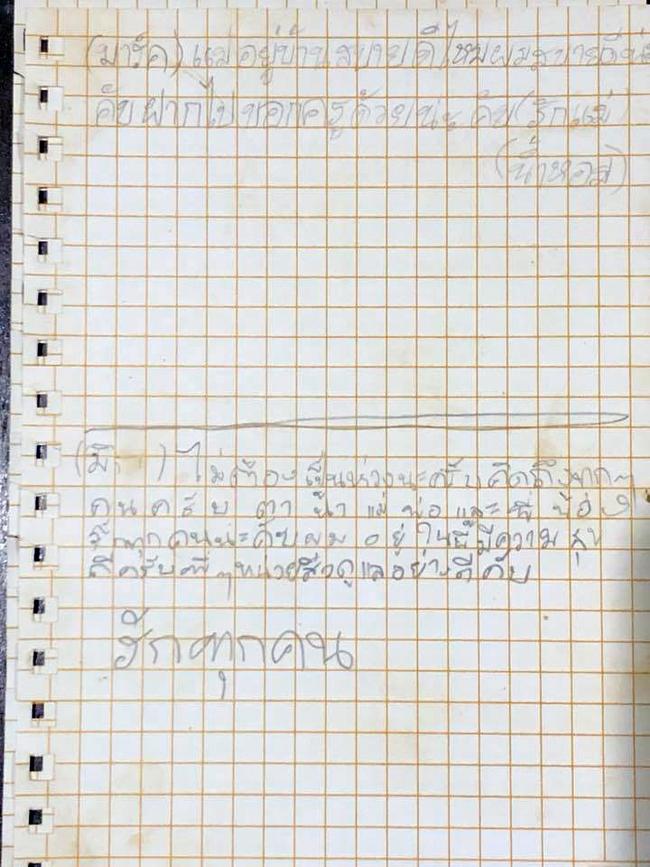 (มาร์ค) แม่อยู่บ้านสบายดีไหมผมสบายดี
คับฝากไปบอกครูด้วยนะคับ(รักแม่)
(น้ำหอม)
(มิ ) ไม่ต้องเป็นห่วงนะครับคิดถึงทุกๆ
คนครับ ตา น้า แม่ พ่อ และ พี่ น้อง
รักทุกคนนะคับผม อยู่ในนี้มีความสุข
ดีครับพี่ๆหน่วยซีลดูแลอย่างดีคับ
รักทุกคน